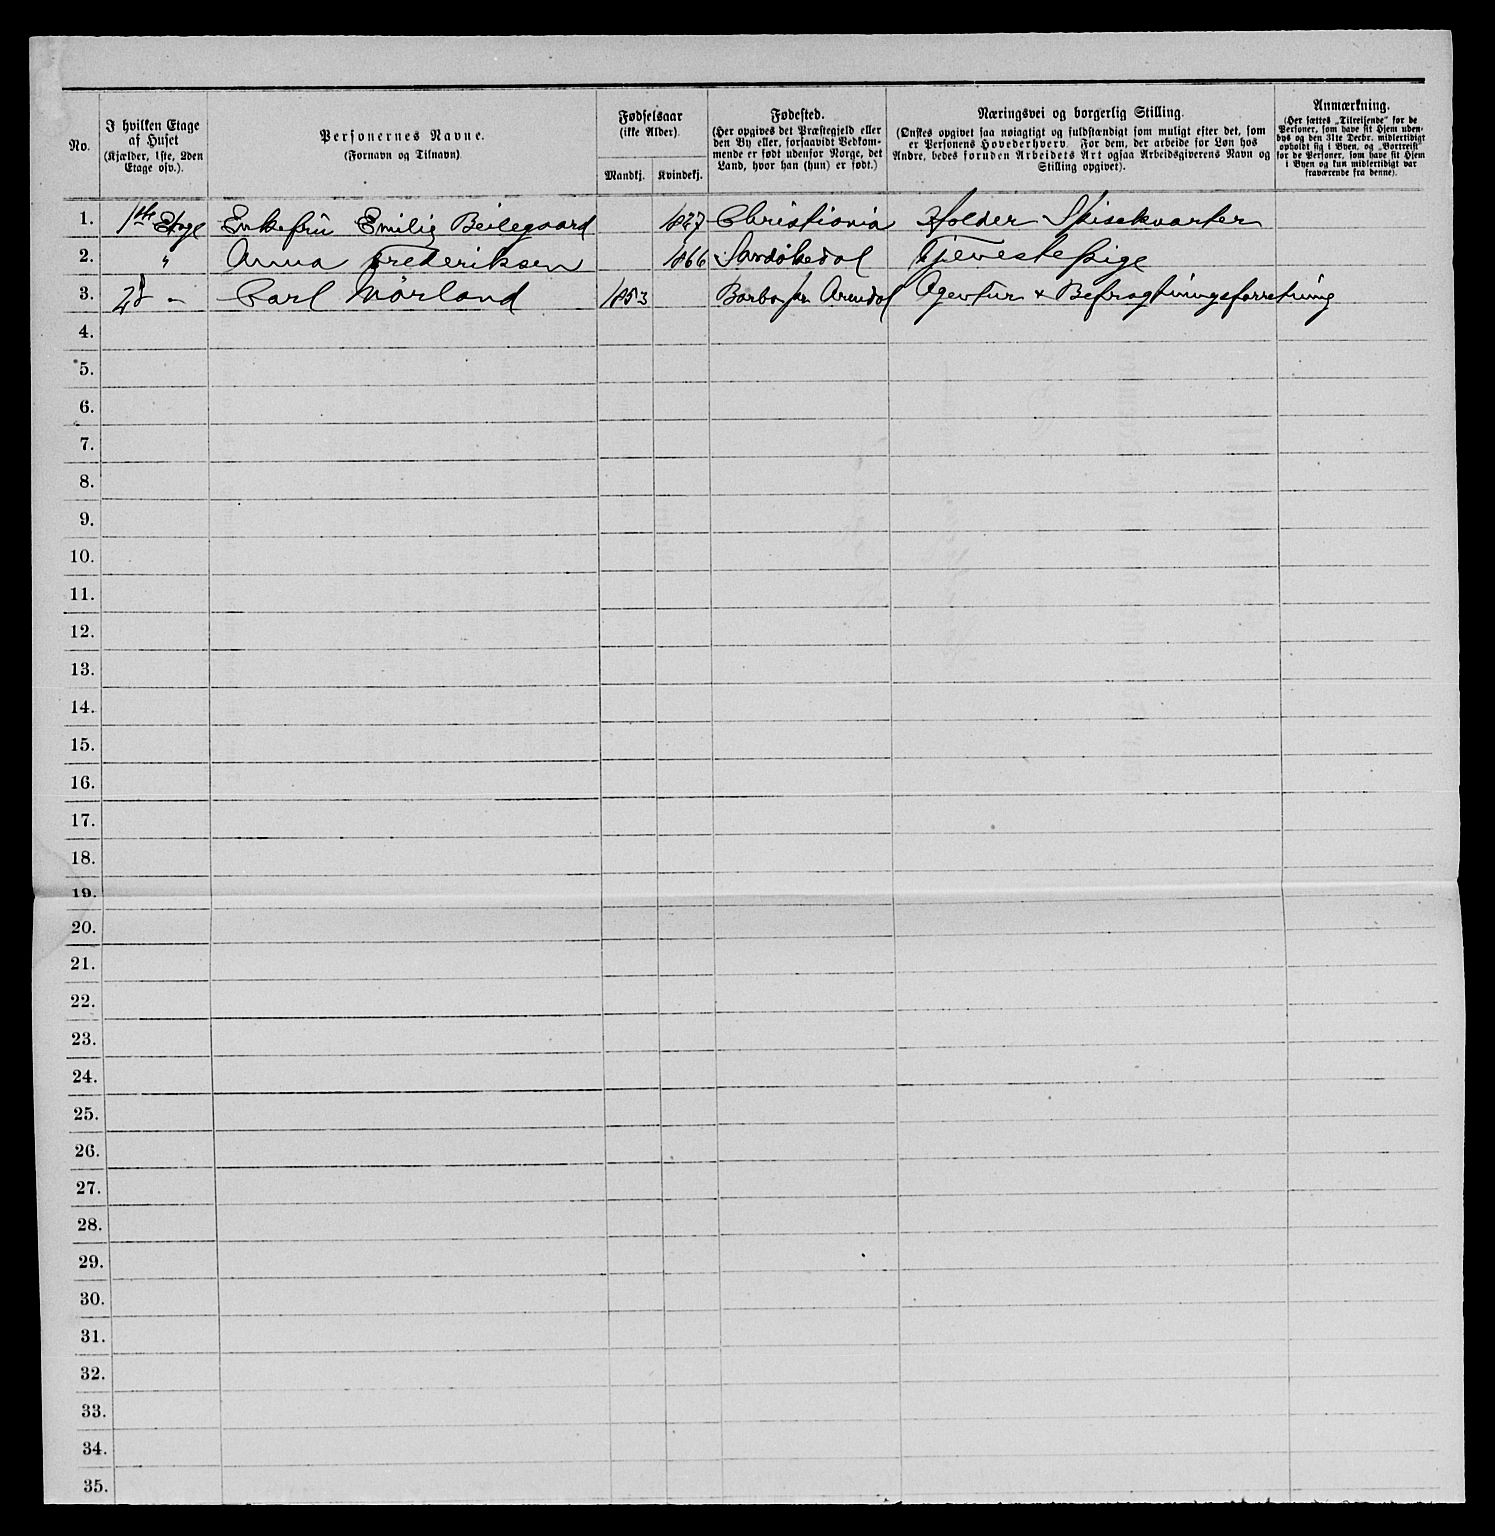 No.
I hvilken Etage
af Huset
(Kjælder, 1ste, 2den
Etage osv.).
Personernes Navne.
(Fornavn og Tilnavn)
Fødselsaar
(ikke Alder)
Mandkj.
Kvindekj.
Fødested.
(Her opgives det Præstegjeld eller
den By eller, forsaavidt Bedkom-
mende er født udenfor Norge, det
Land, hvor han (hun) er født.)
Næringsvei og borgerlig Stilling.
(Ønskes opgivet saa nøiagtigt og fuldstændigt som muligt efter det, som
er Personens Hovederhverv. For dem, der arbeide for Løn hos
Andre, bedes foruden Arbeidets Art ogsaa Arbeidsgiverens Navn og
Stilling opgivet).
Anmærkning.
(Her sættes „Tilreisende" for de
Personer, som have sit Hjem uden-
bys og den 31te Decbr. midlertidigt
opholdt sig i Byen, og „Bortreist"
for de Personer, som have sit Hjem
i Byen og kun midlertidigt var
fraværende fra denne).
1. 1ste Etage Enkefru Emilie Beilegaard 1827 Christiania Holder Spisekvarter
2. " Anna Frederiksen 1866 Sandøkedal Tjenestepige
3. 2d - Carl Mörland 1853 Barbo pr Arendal Agentur & Befragtningsforretning
4.
5.
6.
7.
8.
9.
10.
11.
12.
13.
14.
15.
16.
17.
18.
19.
20.
21.
22.
23.
24.
25.
26.
27.
28.
29.
30.
31.
32.
33.
34.
35.